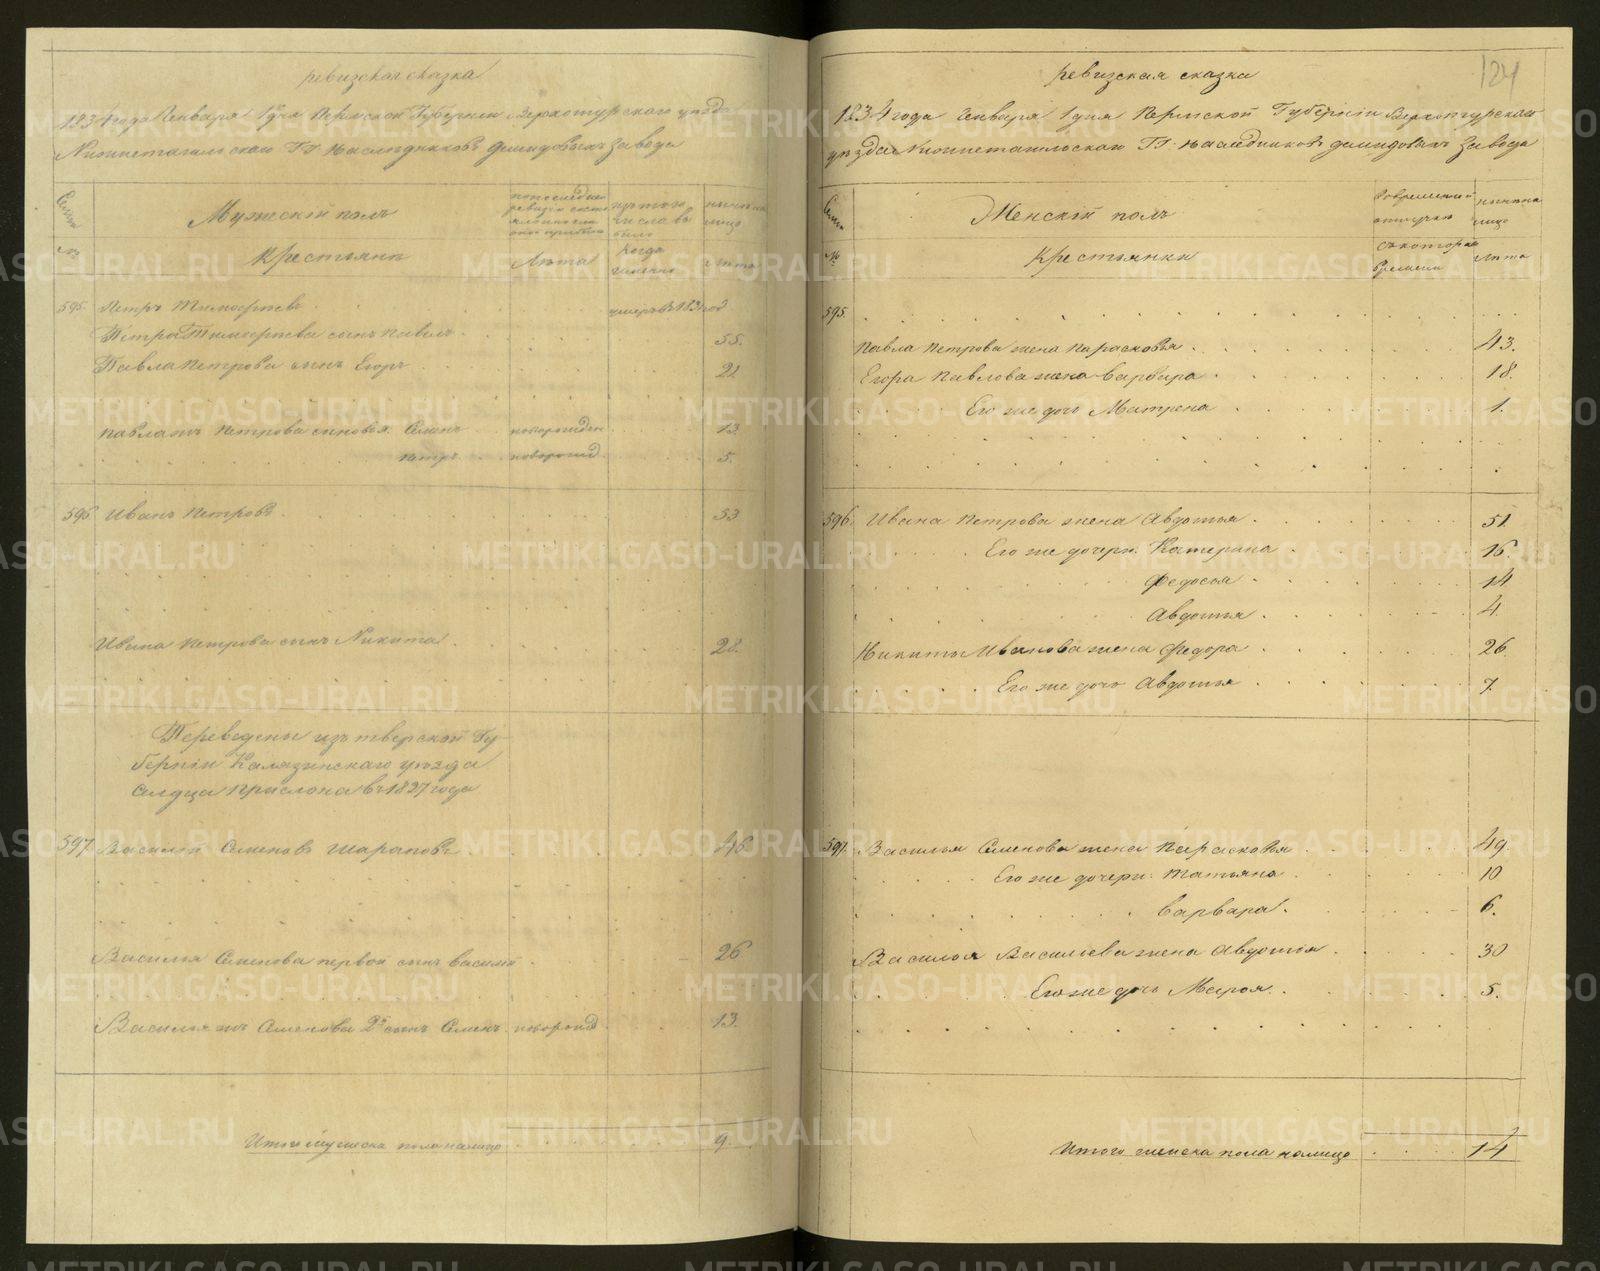 ревизская сказка
1834 года Генваря 1 дня Пермской Губернии Верхотурскаго уезда
Нижнетагильскаго ГГ. наследниковъ Демидовыхъ завода
Семьи
Мужескiй полъ
по последней ревизiи состояло и после оной прибыло
изъ того числа выбыло
ныне на лицо
№
Крестьяне
Лета
Когда именно
лета
595. Петръ Тимофеевъ умеръ въ 1831 год
Петра Тимофеева сынъ Павелъ 55.
Павла Петрова сынъ Егоръ 21
Павла жъ Петрова сыновья: Семенъ новорожден 13
Петръ новорожд 5.
596 Иванъ Петровъ 53
Ивана Петрова сынъ Никита 28.
Переведены изъ Тверской Гу
бернiи Калязинскаго уезда
Сельца Прислона въ 1827 года
597 Василiй Семеновъ Шараповъ 46
Василья Семенова первой сынъ Василiй 26
Василья жъ Семенова 2й сынъ Семенъ новорожд. 13.
Итого мужеска пола налицо 9.
124
ревизская сказка
1834 года Генваря 1 дня Пермской Губернiи Верхотурскаго
уезда Нижнетагильскаго ГГ. наследниковъ Демидовыхъ завода
Семьи
Женскiй полъ
Во временной отлучке
ныне на лицо
№
Крестьянки
съ котораго времени
лета
595.
Павла Петрова жена Парасковья 43.
Егора Павлова жена Варвара 18.
Его же дочь Матрена 1.
596. Ивана Петрова жена Авдотья 51.
Его же дочери: Катерина 16.
Федосья 14
Авдотья 4.
Никиты Иванова жена Федора 26.
Его же дочь Авдотья 7.
597. Василья Семенова жена Парасковья 49.
Его же дочери: Татьяна 10
Варвара 6.
Василья Васильева жена Авдотья 30
Его же дочь Марья 5.
Итого женска пола налицо 14
METRIKI.GASO-URAL.RU